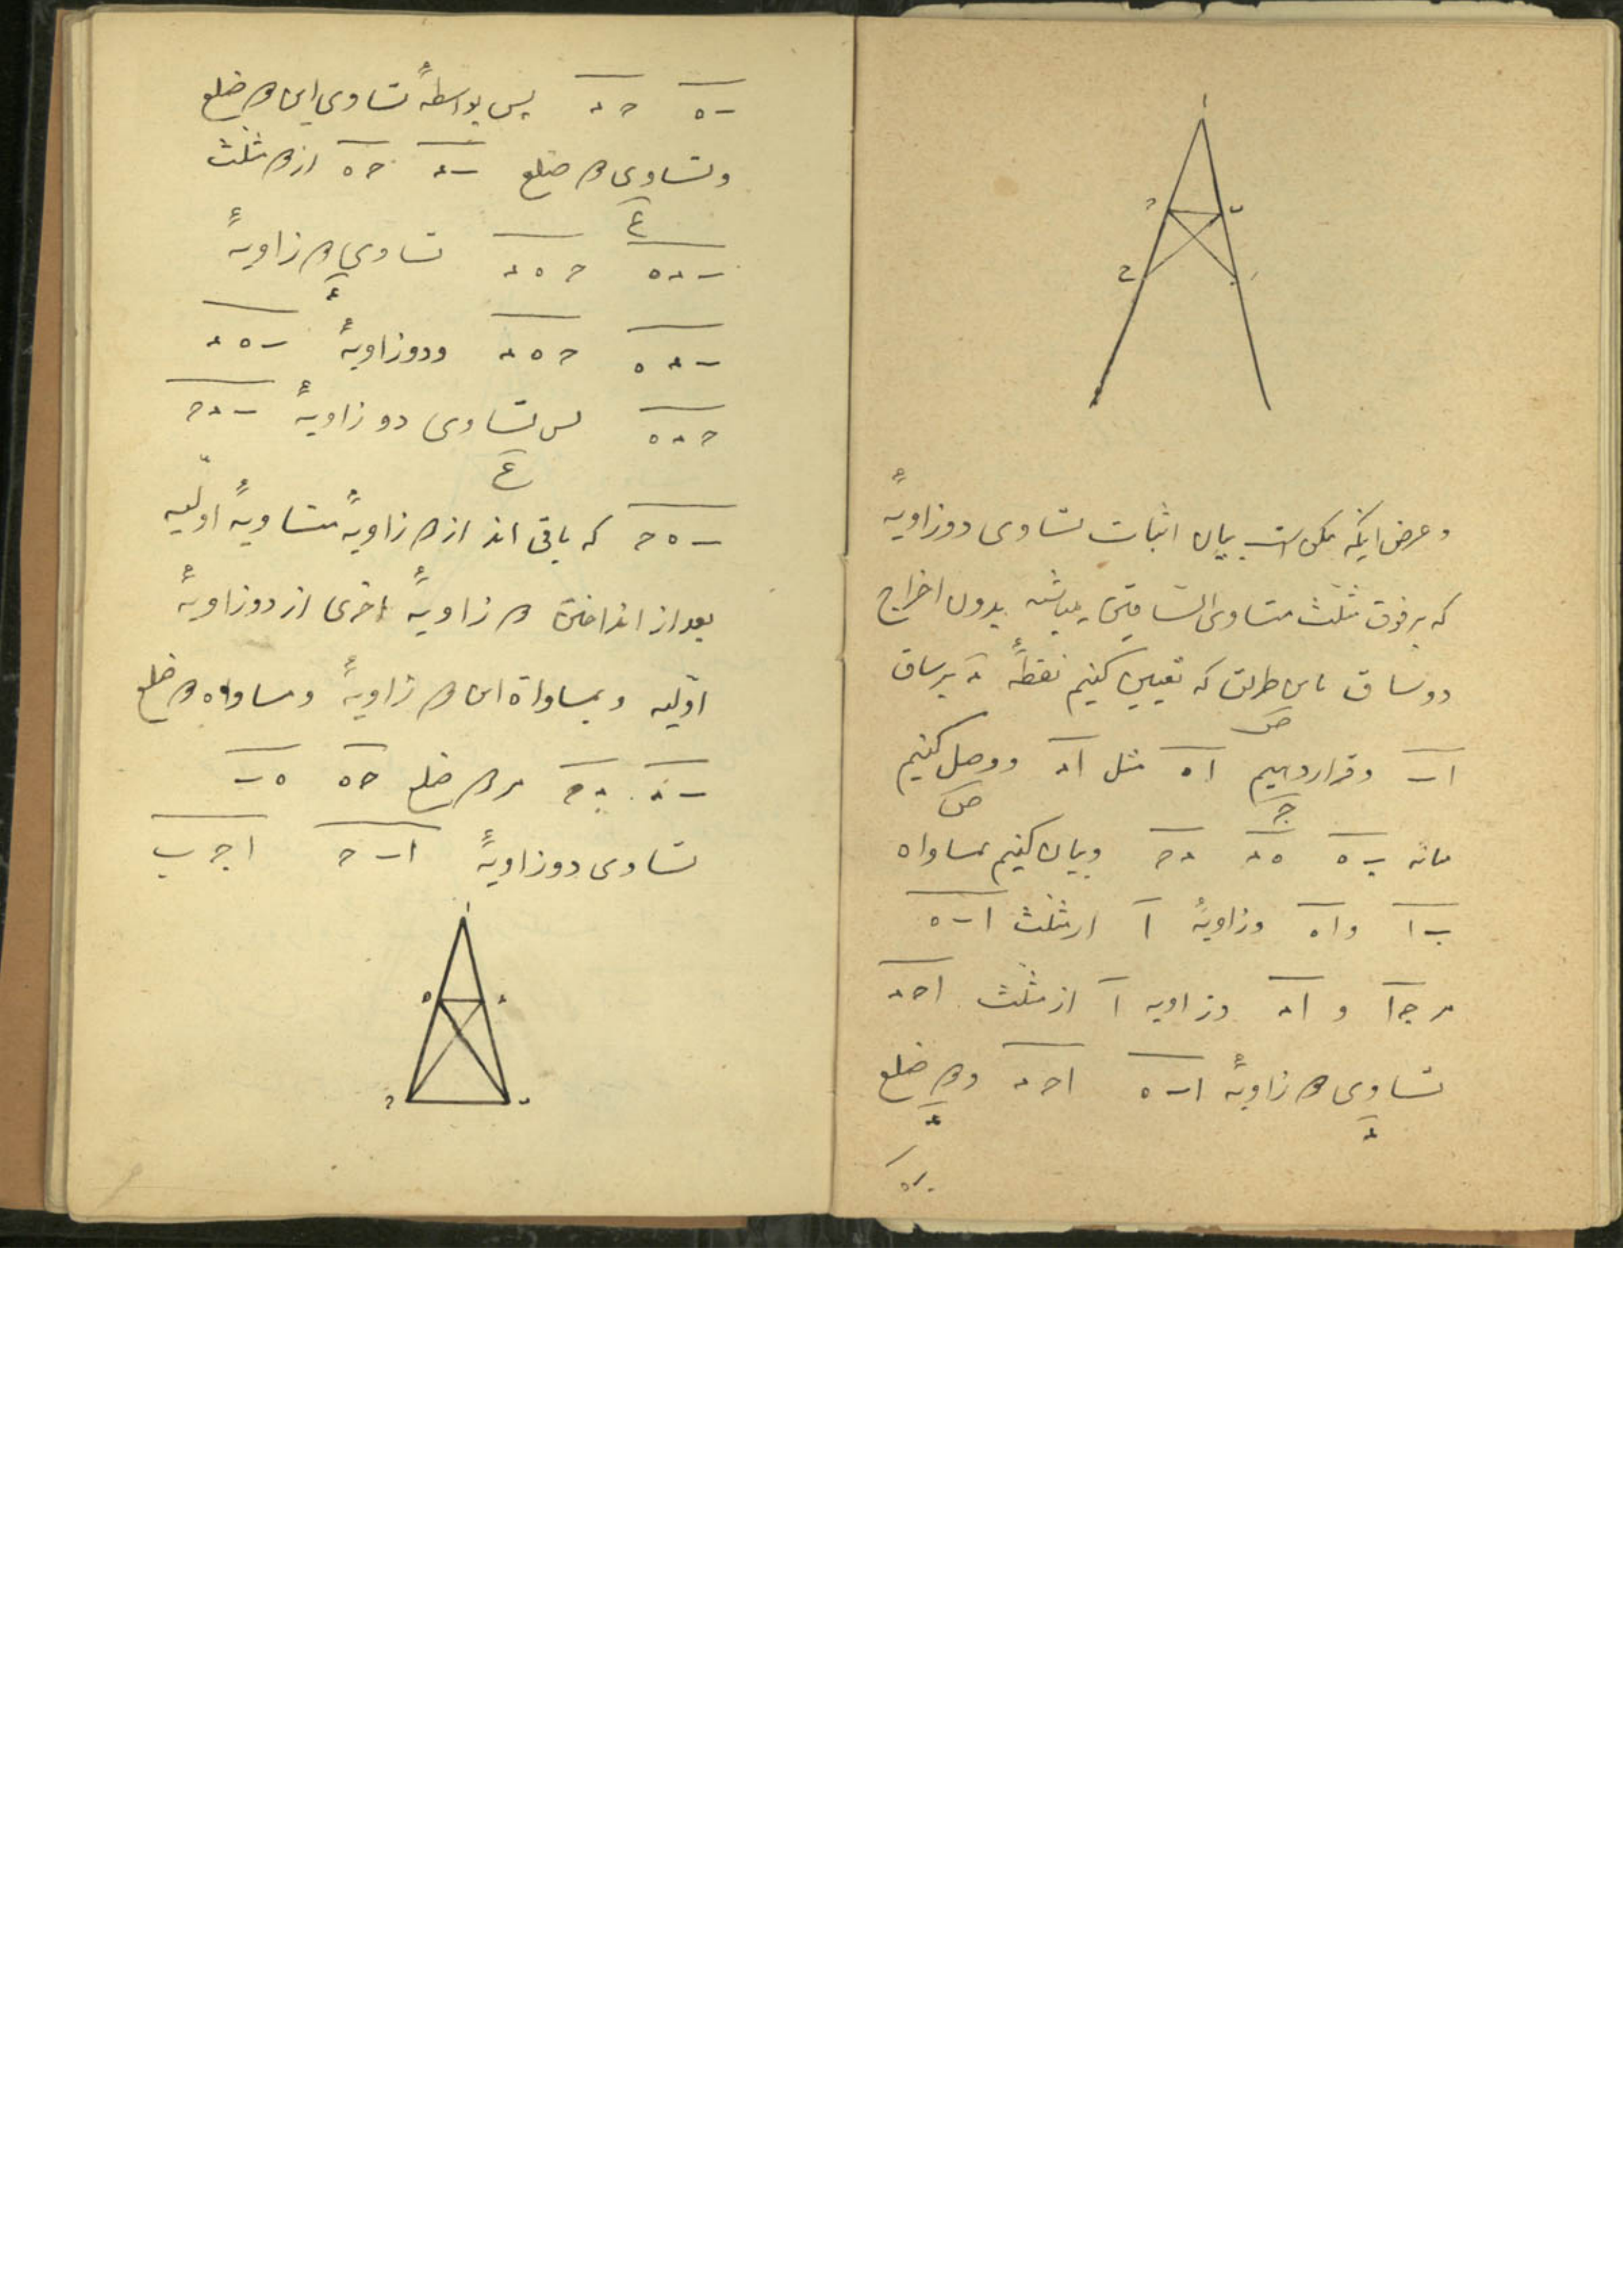 ا
ح ب
ح
و عرض اینکه ممکن است بیان اثبات تساوی دو زاویهٔ
که بر فوق مثلث متساوی الساقین میباشد بدون اخراج
دو ساق باین طریق که تعیین کنیم نقطهٔ د بر ساق
اب و قرار دهیم اه مثل اد و وصل کنیم
به هد دح و بیان کنیم بمساواة
با و اه و زاویهٔ ا از مثلث ابه
مر جا و اد و زاویه ا از مثلث احد
تساوی دو زاویهٔ ابه احد و دو ضلع
به
به حد پس بواسطهٔ تساوی این دو ضلع
و تساوی دو ضلع بد حه از دو مثلث
بده حهد تساوی دو زاویهٔ
بده حهد و دو زاویهٔ بهد
حده پس تساوی دو زاویهٔ بدح
بهح که باقی اند از دو زاویهٔ متساویهٔ اولیه
بعد از انداختن دو زاویهٔ اخری از دو زاویهٔ
اولیه و بمساواة این دو زاویهٔ و مساواه دو ضلع
بد دح مر دو ضلع حه هب
تساوی دو زاویهٔ ابح اجب
ا
ه د
ح ب